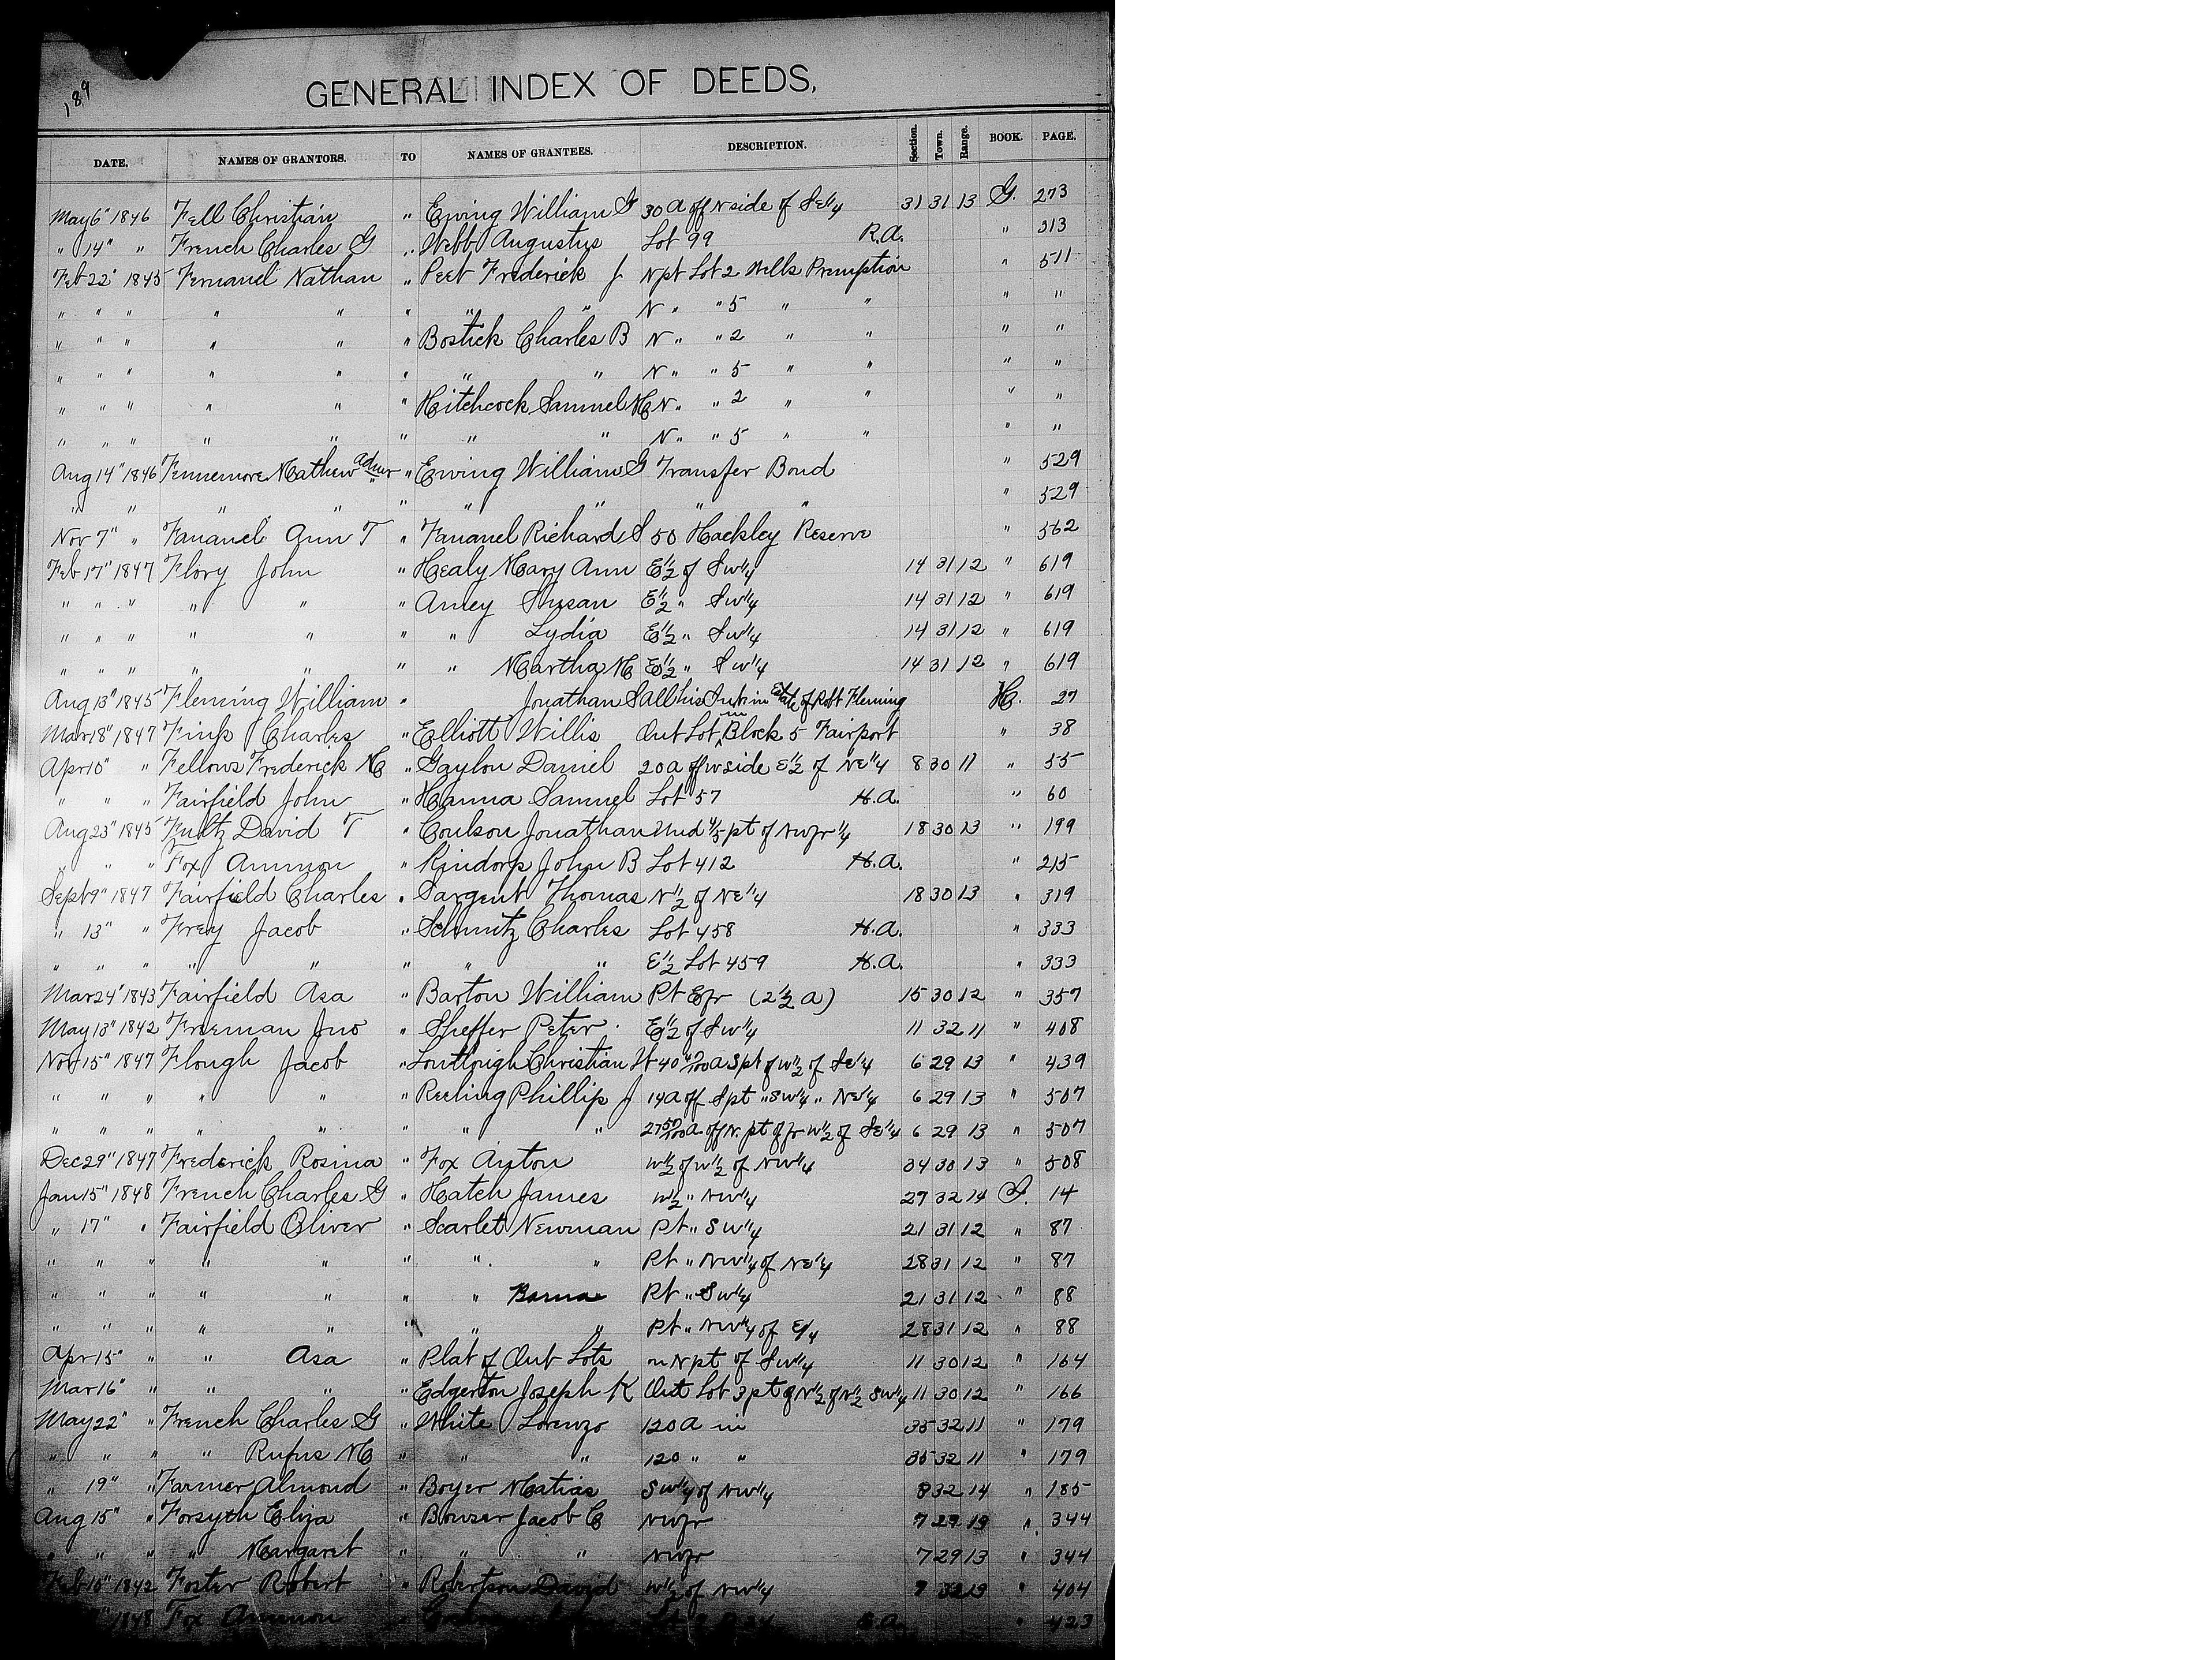 189
GENERAL INDEX OF DEEDS,
DATE. NAMES OF GRANTORS. TO NAMES OF GRANTEES. DESCRIPTION. Section. Town. Range. BOOK. PAGE.
May 6" 1846 Fell Christian " Ewing William G 30 a off N side of Se 1/4 31 31 13 G. 273
" 14" " French Charles G " Webb Augustus Lot 99 R.A. " 313
Feb 22" 1845 Fernanel Nathan " Peet Frederick J N pt Lot 2 Wells Premption " 511
" " " " " " " " N " " 5 " " " "
" " " " " " Bostick Charles B N " " 2 " " " "
" " " " " " " " N " " 5 " " " "
" " " " " " Hitchcock Samuel H N " " 2 " " " "
" " " " " " " " N " " 5 " " " "
Aug 14" 1846 Fennemore Mathew Admr " Ewing William G Transfer Bond " 529
" " " " " " " " " " 529
Nov 7" " Fananel Ann T " Fananel Richard S 50 Hackley Reserve " 562
Feb 17" 1847 Flory John " Healy Mary Ann E 1/2 of Sw 1/4 14 31 12 " 619
" " " " " " Amey Susan E 1/2 " Sw 1/4 14 31 12 " 619
" " " " " " " Lydia E 1/2 " Sw 1/4 14 31 12 " 619
" " " " " " " Martha M E 1/2 " Sw 1/4 14 31 12 " 619
Aug 13" 1845 Fleming William " Jonathan S All his Int in Estate of Robt Fleming H. 27
Mar 18" 1847 Fink Charles " Elliott Willis Out Lot in Block 5 Fairport " 38
Apr 10" " Fellows Frederick M " Gaylon Daniel 20 a off W side E 1/2 of NE 1/4 8 30 11 " 55
" " " Fairfield John " Hanna Samuel Lot 57 H.A. " 60
Aug 23" 1845 Fultz David T " Coulson Jonathan Und 4/5 pt of NW fr 1/4 18 30 13 " 199
" " " Fox Ammon " Kindorp John B Lot 412 H.A. " 215
Sept 9" 1847 Fairfield Charles " Sargent Thomas N 1/2 of NE 1/4 18 30 13 " 319
" 13" " Frey Jacob " Schmitz Charles Lot 458 H.A. " 333
" " " " " " " " E 1/2 Lot 459 H.A. " 333
Mar 24" 1843 Fairfield Asa " Barton William Pt E fr (2 1/2 a) 15 30 12 " 357
May 13" 1842 Freeman Jno " Sheffer Peter E 1/2 of Sw 1/4 11 32 11 " 408
Nov 15" 1847 Flough Jacob " Christian W 40 a S pt of W 1/2 of Se 1/4 6 29 13 " 439
" " " " " " Reeling Phillip J 14 a off S pt " Sw 1/4 " NE 1/4 6 29 13 " 507
" " " " " " " " 27 50/100 a off N. pt of fr W 1/2 of Se 1/4 6 29 13 " 507
Dec 29" 1847 Frederick Rosina " Fox Anton W 1/2 of W 1/2 of NW 1/4 34 30 13 " 508
Jan 15" 1848 French Charles G " Hatch James W 1/2 " NW 1/4 27 32 14 I. 14
" 17" " Fairfield Oliver " Scarlet Newman Pt " SW 1/4 21 31 12 " 87
" " " " " " " " Pt " NW 1/4 of NE 1/4 28 31 12 " 87
" " " " " " " Barna Pt " SW 1/4 21 31 12 " 88
" " " " " " " " Pt " NW 1/4 of E/4 28 31 12 " 88
Apr 15" " " Asa " Plat of Out Lots on N pt of Sw 1/4 11 30 12 " 164
Mar 16" " " " " Edgerton Joseph K Out Lot 3 pt of N 1/2 of N 1/2 SW 1/4 11 30 12 " 166
May 22" " French Charles G " White Lorenzo 120 A in 35 32 11 " 179
" " " " Rufus M " " " 120 " " 35 32 11 " 179
" 19" " Farmer Almond " Boyer Matias SW 1/4 of NW 1/4 8 32 14 " 185
Aug 15" " Forsyth Eliza " Bowser Jacob C NW fr 7 29 13 " 344
" " " " Margaret " " " NW fr 7 29 13 " 344
Feb 10" 1842 Foster Robert " Robertson David W 1/2 of NW 1/4 9 32 13 " 404
1848 Fox Ammon " Lot " 423